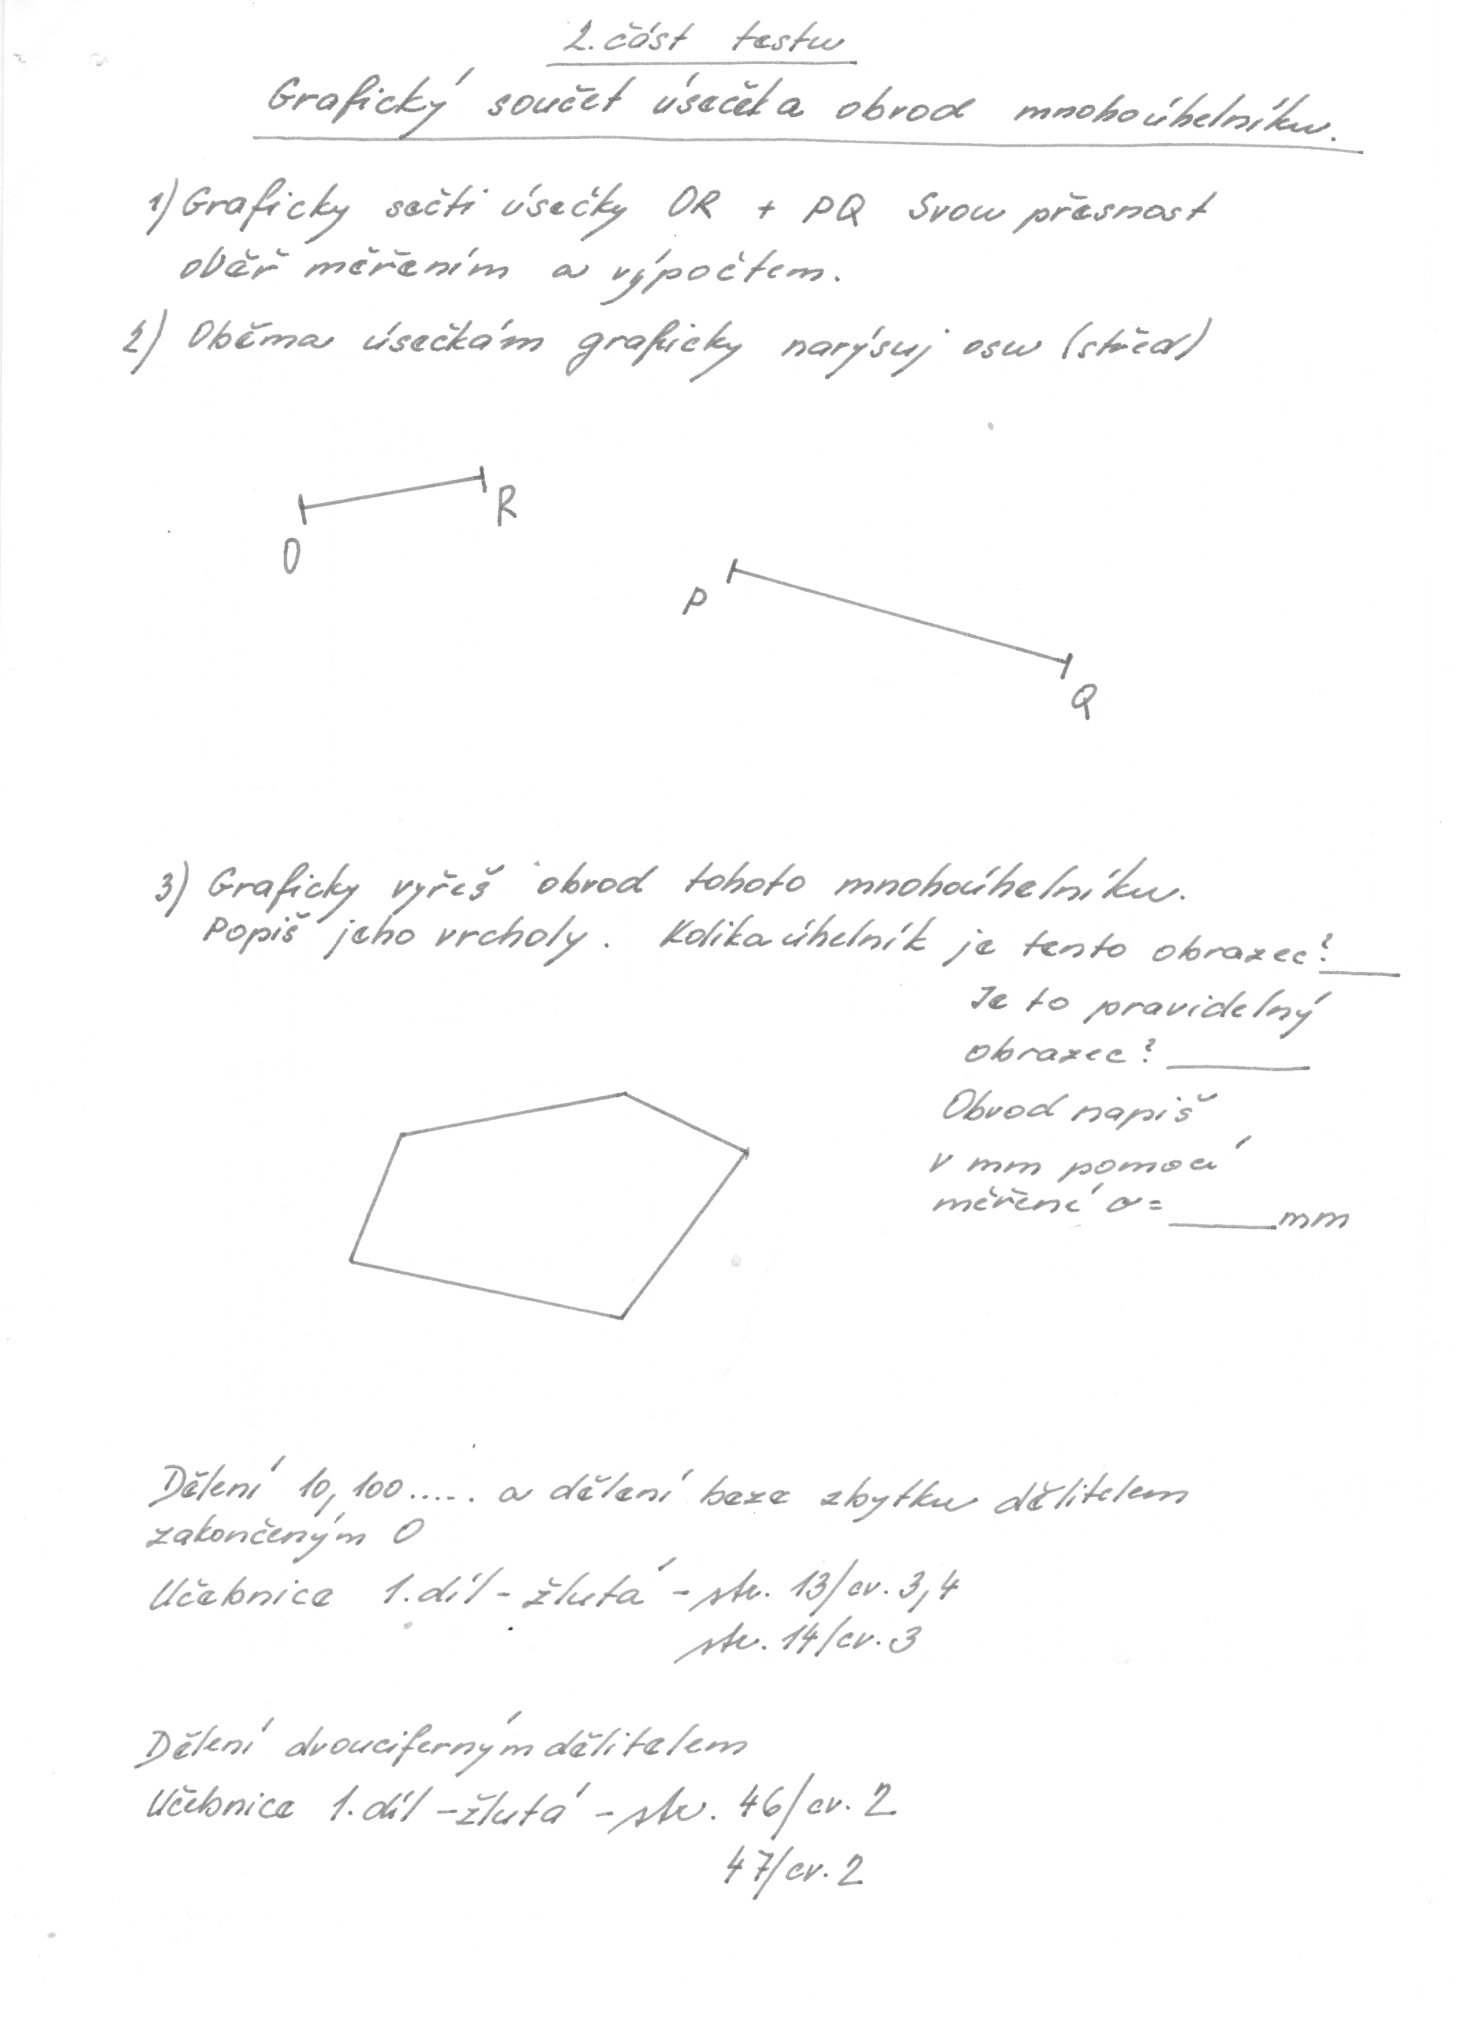 2. část testu
Grafický součet úseček a obvod mnohoúhelníku.
1) Graficky sečti úsečky OR + PQ Svou přesnost
ověř měřením a výpočtem.
2) Oběma úsečkám graficky narýsuj osu (střed)
R
O
P
Q
3) Graficky vyřeš obvod tohoto mnohoúhelníku.
Popiš jeho vrcholy. Kolikaúhelník je tento obrazec? ____
Je to pravidelný
obrazec? ____
Obvod napiš
v mm pomocí
měření o = ____ mm
Dělení 10, 100..... a dělení beze zbytku dělitelem
zakončeným 0
Učebnice 1. díl - žlutá - str. 13/cv. 3,4
str. 14/cv. 3
Dělení dvouciferným dělitelem
Učebnice 1. díl - žlutá - str. 46/cv. 2
47/cv. 2